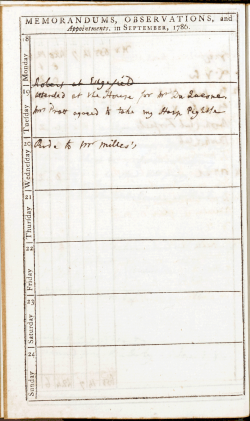 MEMORANDUMS, OBSERVATIONS, and
Appointments, in SEPTEMBER, 1786.
Monday
Robert at Edgefield
Tuesday
attended at the House for Mr
Mrs Pratt agreed to take my
Wednesday 20
Rode to Mr Milles's
Thursday 21
Friday 22
Saturday 23
Sunday 24